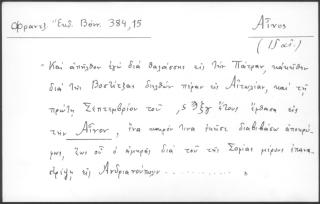 Φραντζ. Ἔκδ. Βόνν. 384,15
Αἶνος
(15 αἰ.)
"Καὶ ἀπῆλθον ἐγὼ διὰ θαλάσσης εἰς τὴν Πάτραν, κἀκεῖθεν
διὰ τῆς Βοστίτζας διελθὼν πέραν εἰς Αἰτωλίαν, καὶ τῇ
πρώτῃ Σεπτεμβρίου τοῦ ἔτους, ἔφθασα εἰς
τὴν Αἶνον, ἵνα καιρόν τινα ἐκεῖσε διαβιβάσω ἀποκρύ-
φως, ἕως οὗ ὁ ἀμηρᾶς διὰ τοῦ τῆς Σοφίας μέρους ἐπανα-
στρέψῃ εἰς Ἀνδριανούπολιν ........... "